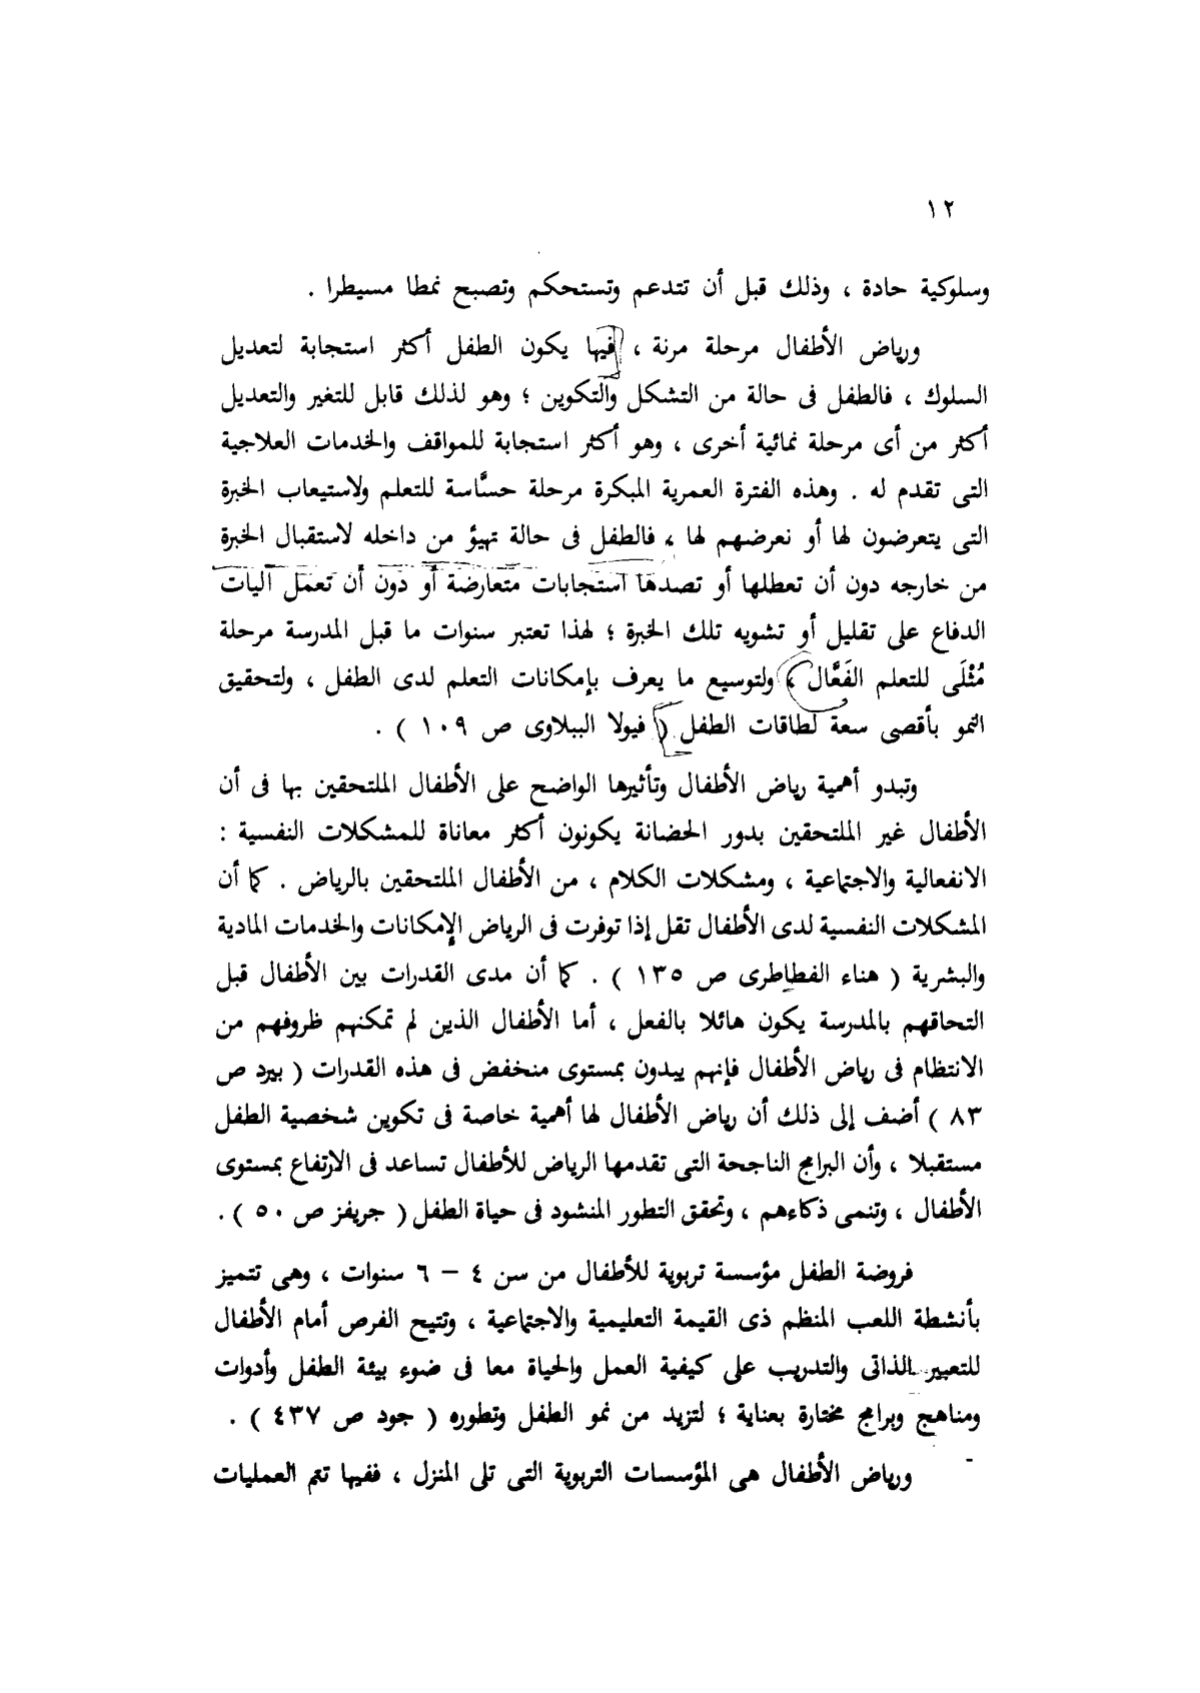 ١٢
وسلوكية حادة ، وذلك قبل أن تتدعم وتستحكم وتصبح نمطا مسيطرا .
ورياض الأطفال مرحلة مرنة ، فيها يكون الطفل أكثر استجابة لتعديل
السلوك ، فالطفل فى حالة من التشكل والتكوين ؛ وهو لذلك قابل للتغير والتعديل
أكثر من أى مرحلة نمائية أخرى ، وهو أكثر استجابة للمواقف والخدمات العلاجية
التى تقدم له . وهذه الفترة العمرية المبكرة مرحلة حسَّاسة للتعلم ولاستيعاب الخبرة
التى يتعرضون لها أو نعرضهم لها ، فالطفل فى حالة تهيؤ من داخله لاستقبال الخبرة
من خارجه دون أن تعطلها أو تصدها استجابات متعارضة أو دون أن تعمل آليات
الدفاع على تقليل أو تشويه تلك الخبرة ؛ لهذا تعتبر سنوات ما قبل المدرسة مرحلة
مُثْلَى للتعلم الفَعَّال ، ولتوسيع ما يعرف بإمكانات التعلم لدى الطفل ، ولتحقيق
النمو بأقصى سعة لطاقات الطفل ( فيولا الببلاوى ص ١٠٩ ) .
وتبدو أهمية رياض الأطفال وتأثيرها الواضح على الأطفال الملتحقين بها فى أن
الأطفال غير الملتحقين بدور الحضانة يكونون أكثر معاناة للمشكلات النفسية :
الانفعالية والاجتماعية ، ومشكلات الكلام ، من الأطفال الملتحقين بالرياض . كما أن
المشكلات النفسية لدى الأطفال تقل إذا توفرت فى الرياض الإمكانات والخدمات المادية
والبشرية ( هناء الفطاطرى ص ١٣٥ ) . كما أن مدى القدرات بين الأطفال قبل
التحاقهم بالمدرسة يكون هائلا بالفعل ، أما الأطفال الذين لم تمكنهم ظروفهم من
الانتظام فى رياض الأطفال فإنهم يبدون بمستوى منخفض فى هذه القدرات ( بيرد ص
٨٣ ) أضف إلى ذلك أن رياض الأطفال لها أهمية خاصة فى تكوين شخصية الطفل
مستقبلا ، وأن البرامج الناجحة التى تقدمها الرياض للأطفال تساعد فى الارتفاع بمستوى
الأطفال ، وتنمى ذكاءهم ، وتحقق التطور المنشود فى حياة الطفل ( جريفز ص ٥٠ ) .
فروضة الطفل مؤسسة تربوية للأطفال من سن ٤ – ٦ سنوات ، وهى تتميز
بأنشطة اللعب المنظم ذى القيمة التعليمية والاجتماعية ، وتتيح الفرص أمام الأطفال
للتعبير الذاتى والتدريب على كيفية العمل والحياة معا فى ضوء بيئة الطفل وأدوات
ومناهج وبرامج مختارة بعناية ؛ لتزيد من نمو الطفل وتطوره ( جود ص ٤٣٧ ) .
ورياض الأطفال هى المؤسسات التربوية التى تلى المنزل ، ففيها تتم العمليات